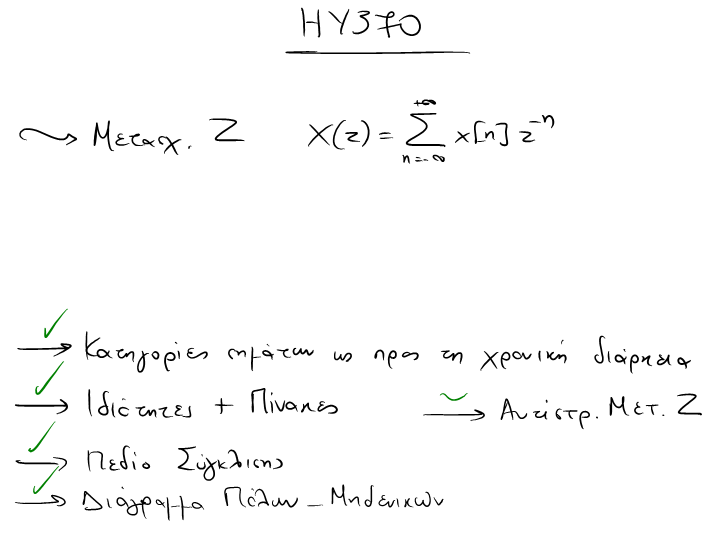 ΗΥ370
Μετασχ. Z X(z) = Σ_{n=-∞}^{+∞} x[n] z^{-n}
Κατηγορίες σημάτων ως προς τη χρονική διάρκεια
Ιδιότητες + Πίνακες
Αντίστρ. Μετ. Z
Πεδίο Σύγκλισης
Διάγραμμα Πόλων - Μηδενικών